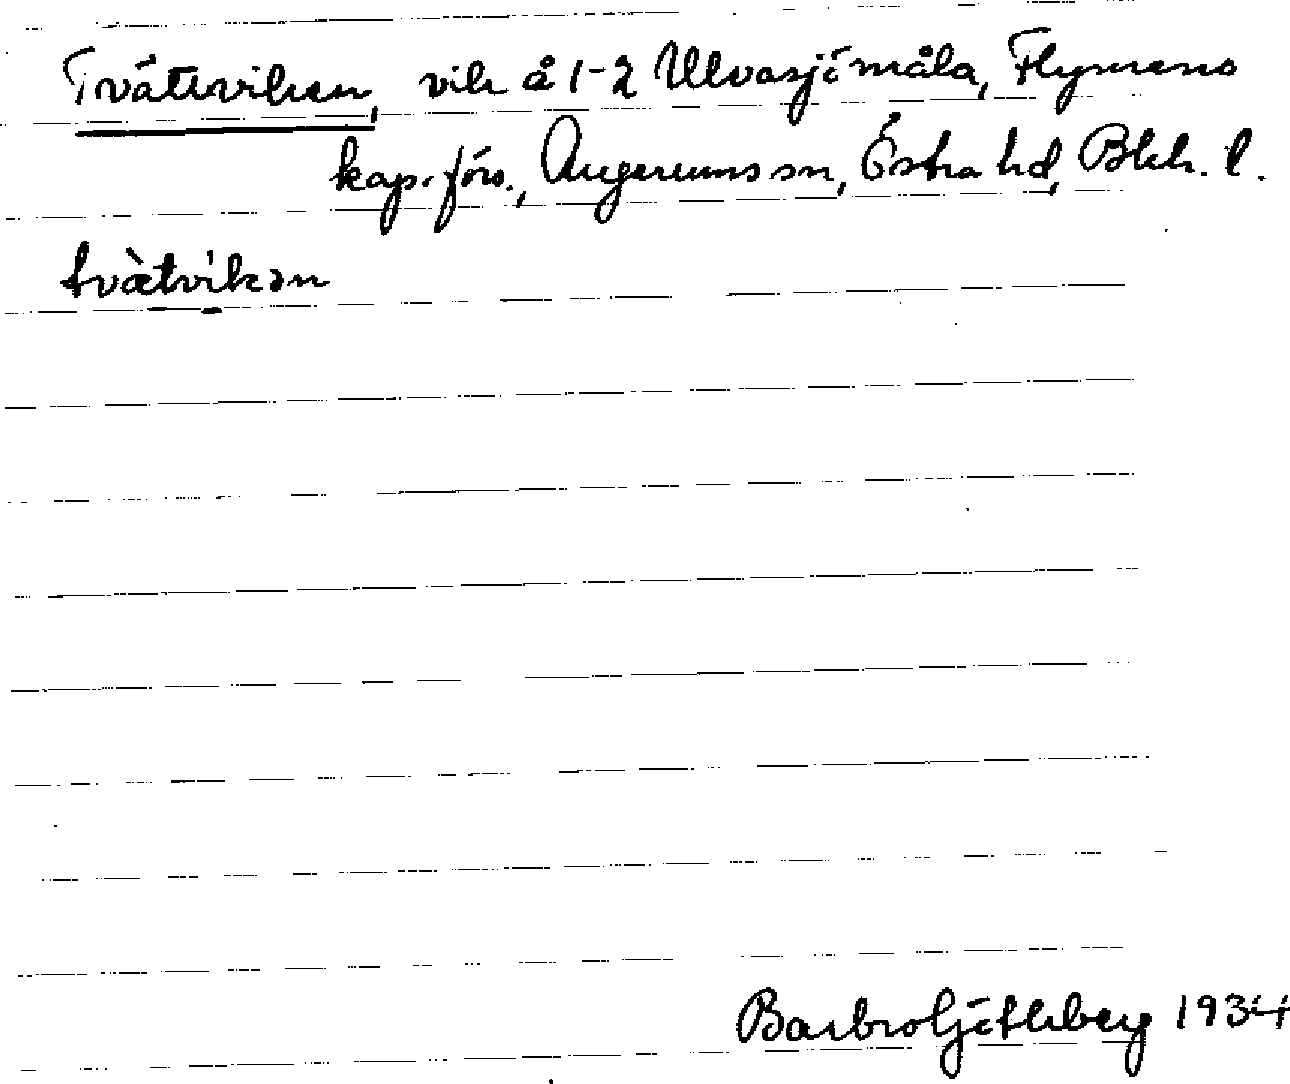 Tvättviken, vik å 1-2 Ulvasjömåla, Flymens
kap. förs., Augerums sn, Östra hd, Blek. l.
tvàtvíkən
Barbro Götheberg 1934